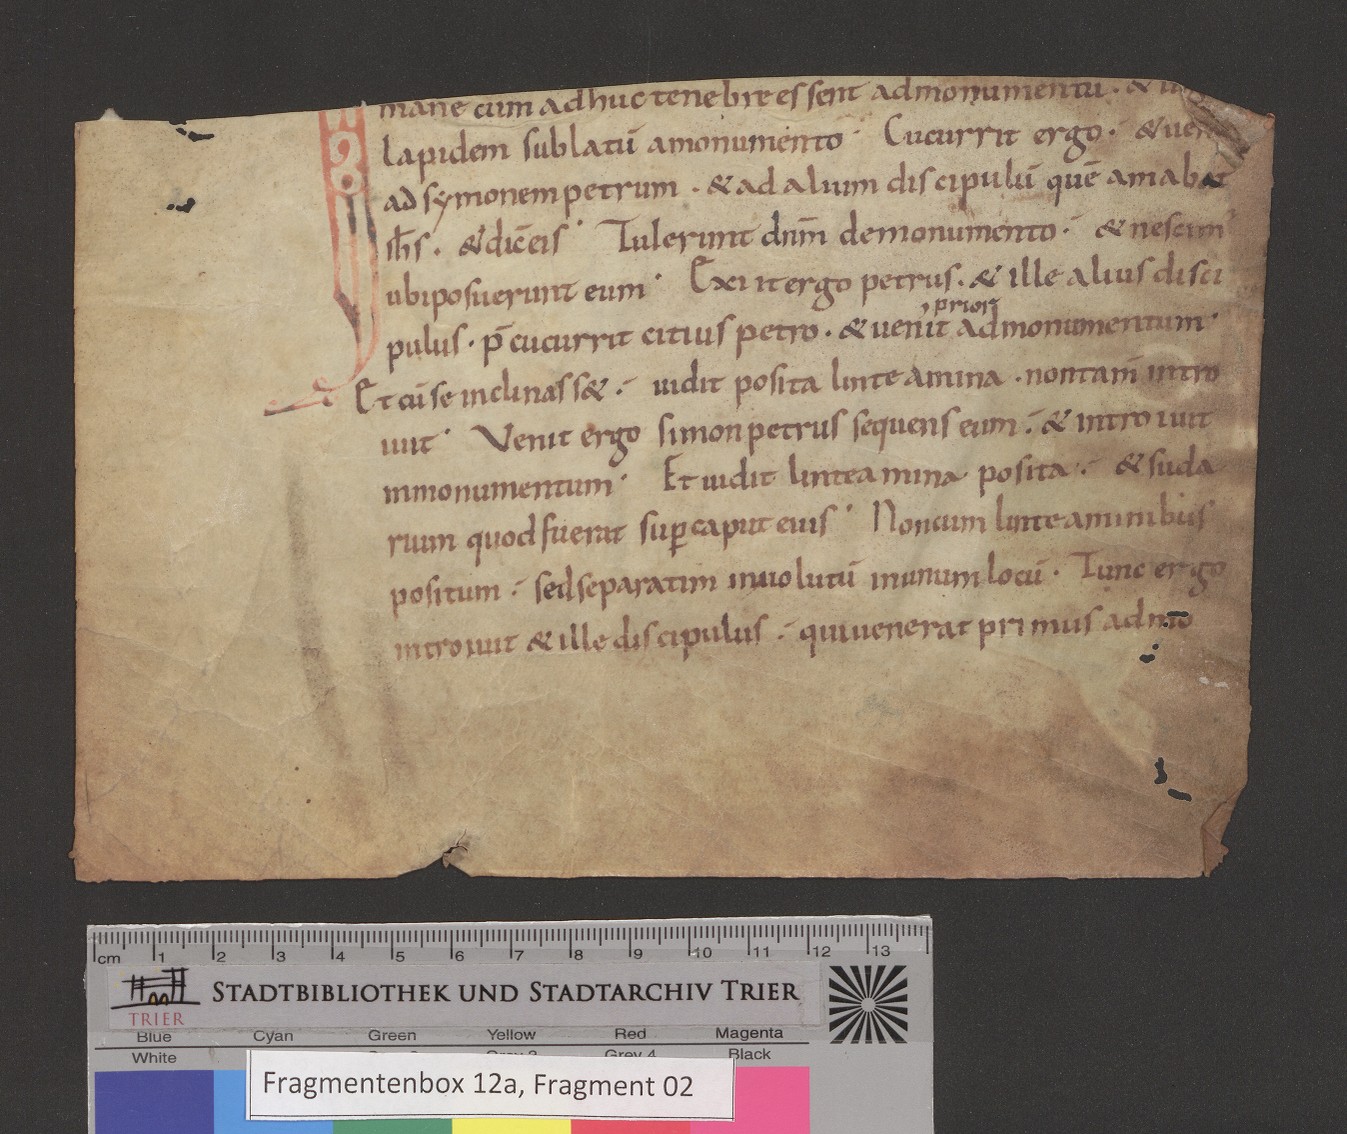 mane cum adhuc tenebre essent ad monumentu. &
lapidem sublatū a monumento. Cucurrit ergo. & uen
ad symonem petrum. & ad alium discipulū quē amabat
ih̄s. & dic̄ eis. Tulerunt dn̄m de monumento. & nescim
ubi posuerunt eum. Exiit ergo petrus. & ille alius disci
prior
pulus. p̄cucurrit citius petro. & uenit ad monumentum.
Et cū se inclinass&. uidit posita linteamina. non tam̄ intro
iuit. Venit ergo simon petrus sequens eum. & introiuit
in monumentum. Et uidit linteamina posita. & suda
rium quod fuerat sup̱ caput eius. Non cum linteaminibus
positum. sed separatim inuolutū in unum locū. Tunc ergo
introiuit & ille discipulus. qui uenerat primus ad mo
cm 1 2 3 4 5 6 7 8 9 10 11 12 13
STADTBIBLIOTHEK UND STADTARCHIV TRIER
TRIER
Blue Cyan Green Yellow Red Magenta
White Grey 4 Black
Fragmentenbox 12a, Fragment 02